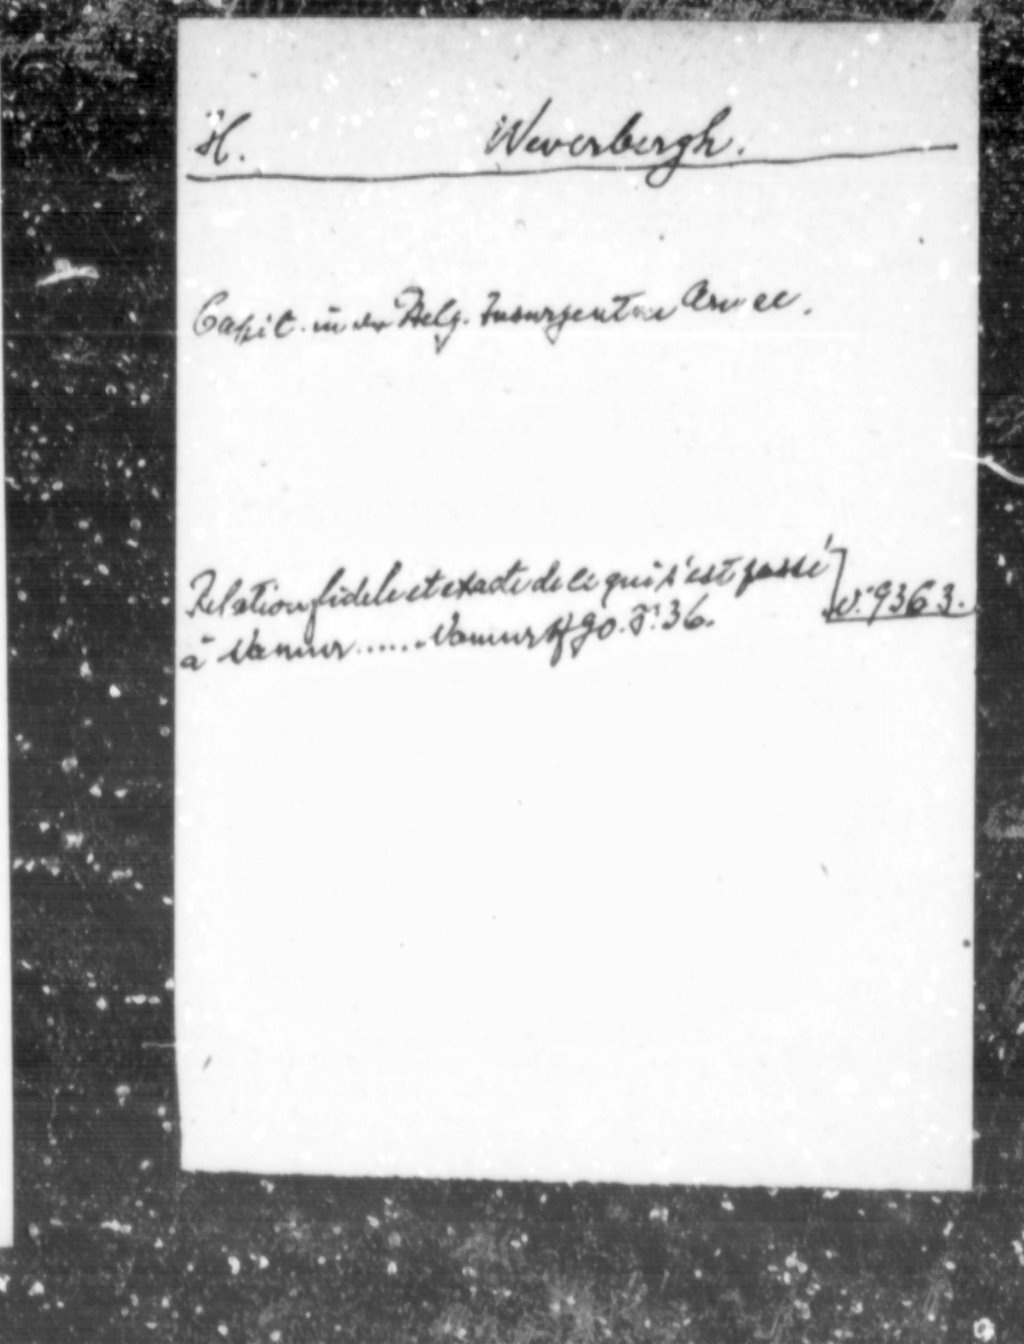 H. Weverbergh.
Capit. in der Belg. Insurgenten Armee.
Relation fidele et exacte de ce qui s'est passé
à Namur ...... Namur 790. 8°. 36.
v. 9363.